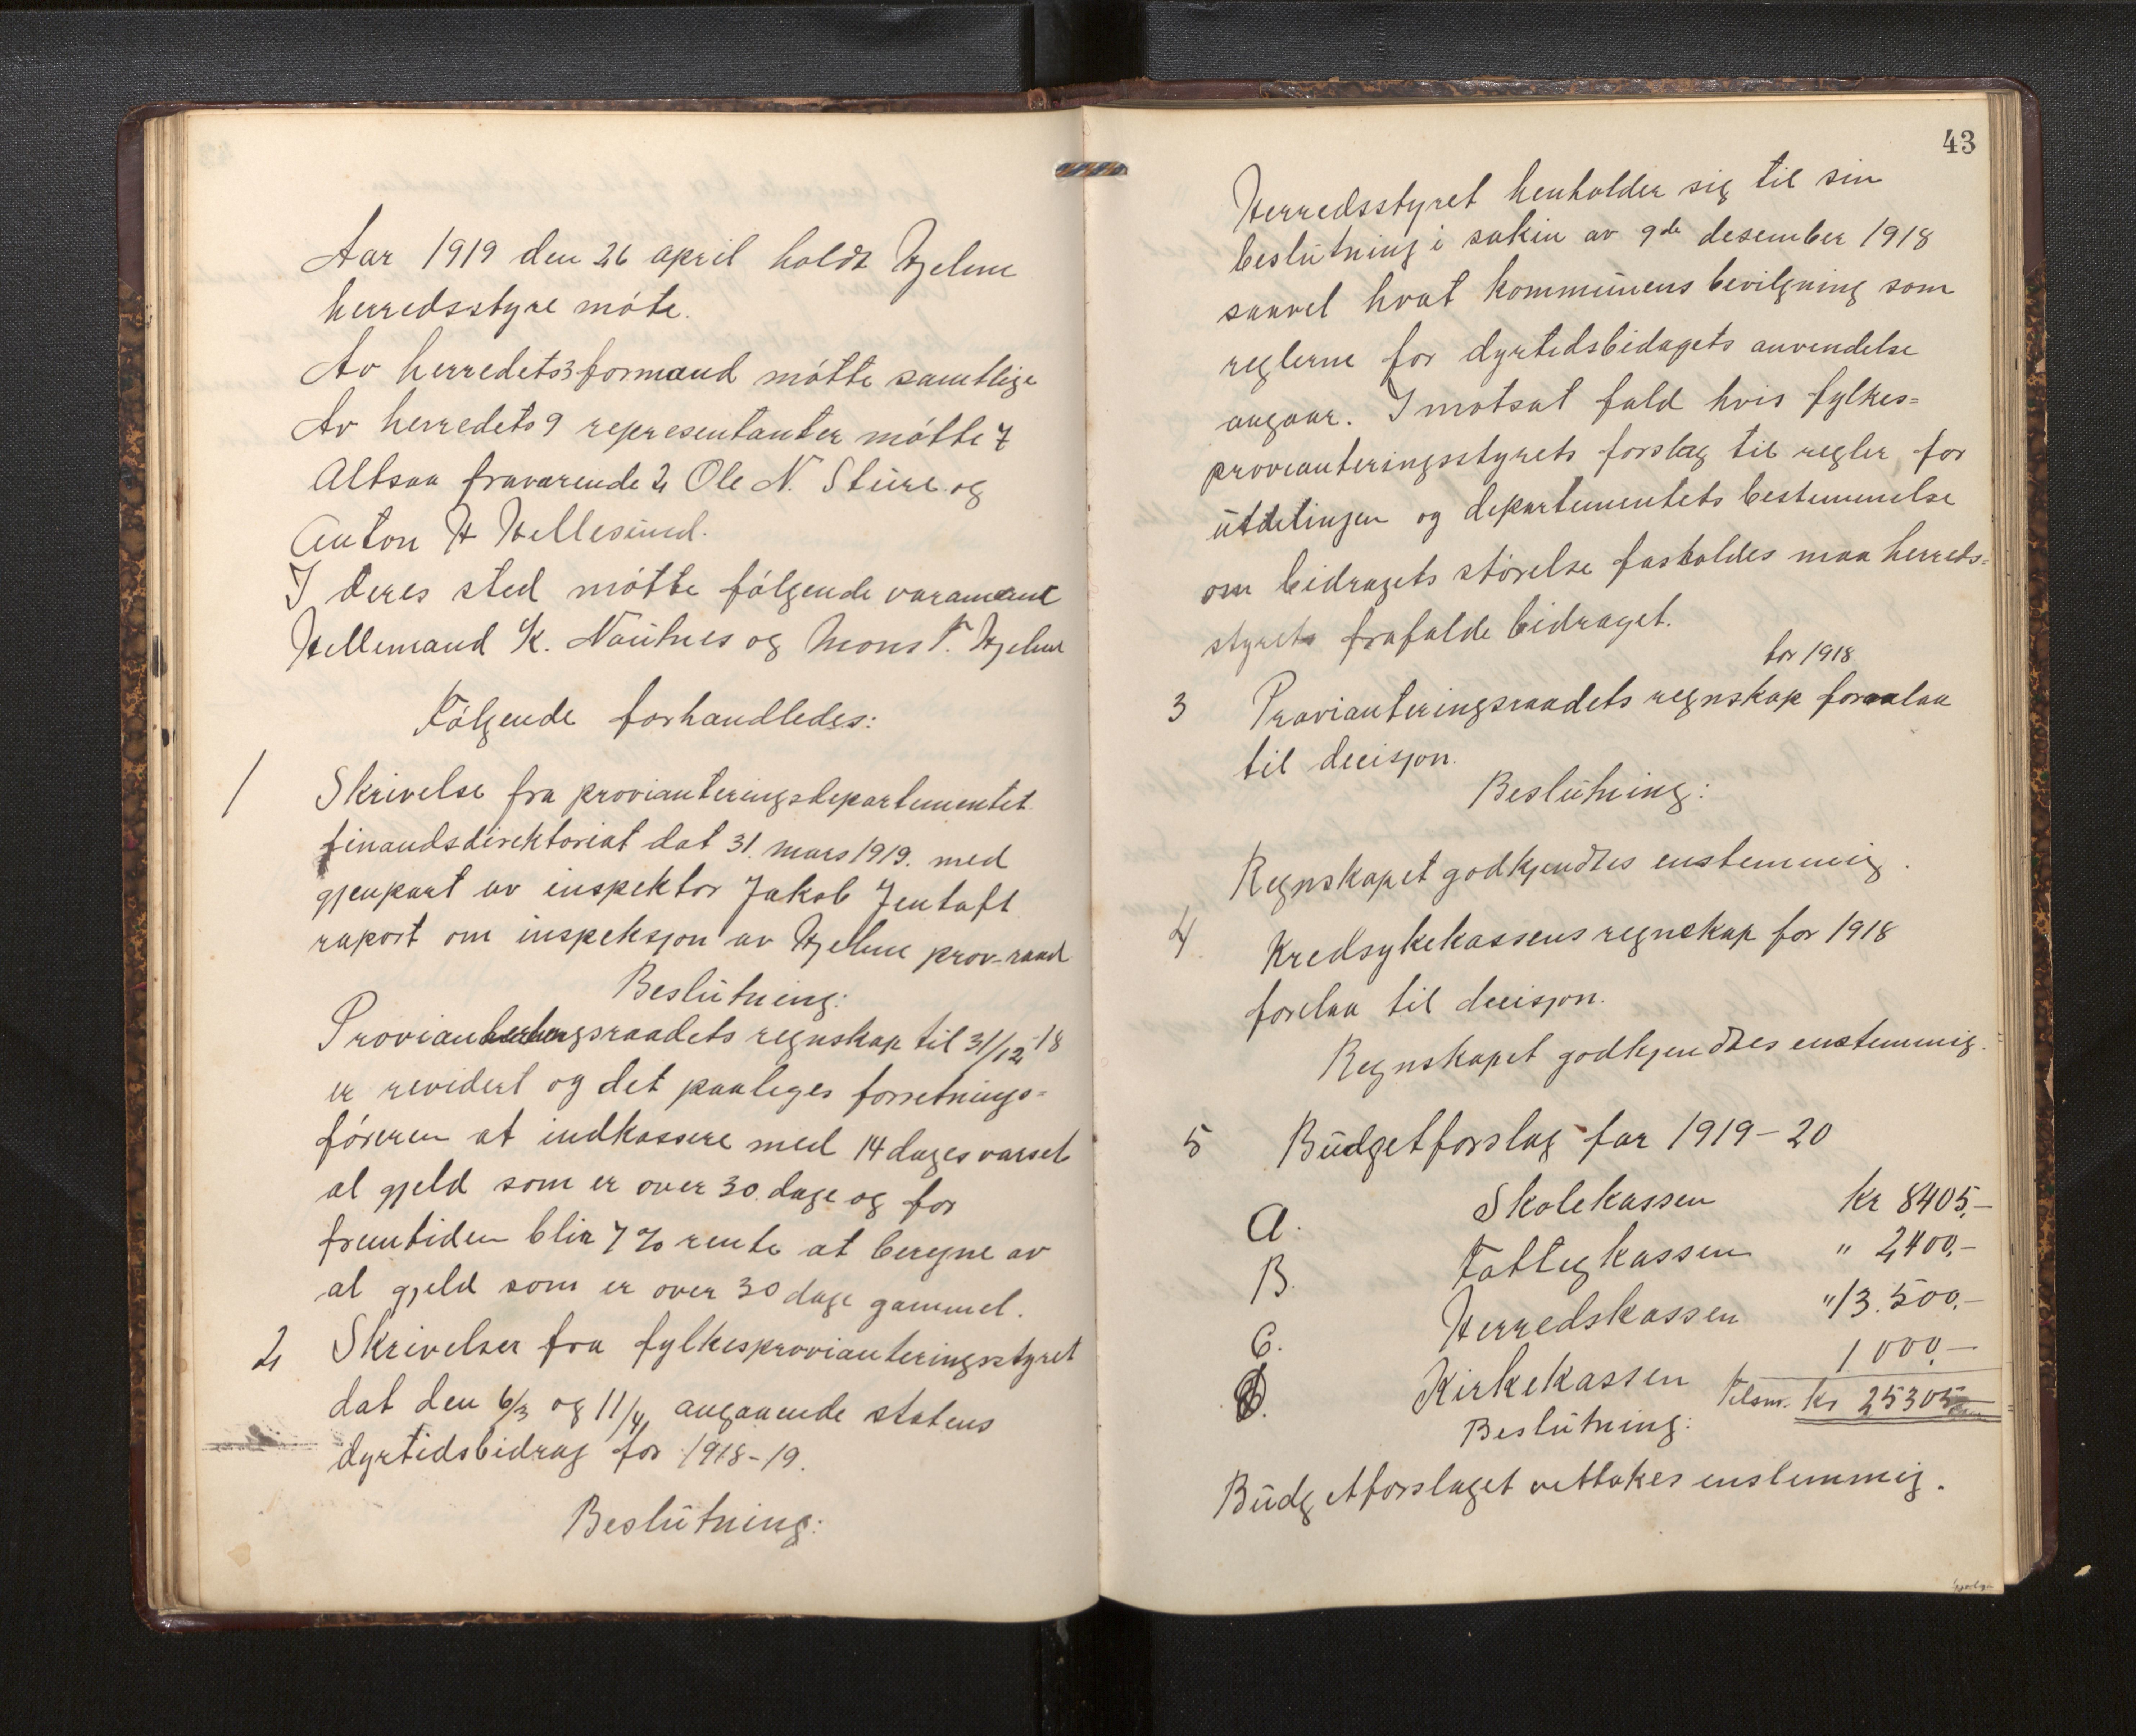 Aar 1919 den 26 april holdt Hjelme
herredsstyre møte.
Av herredets 3 formænd møtte samtlige
Av herredets 9 representanter møtte 7
Altsaa fraværende 2 Ole N. Sture og
Anton H Hellesund.
I deres sted møtte følgende varamænd
Hellemand K. Nautnes og Mons T. Hjelme
Følgende forhandledes:
1 Skrivelse fra provianteringsdepartementet
finandsdirektoriat dat 31. mars 1919. med
gjenpart av inspektør Jakob Jentoft
raport om inspeksjon av Hjelme prov-raad
Beslutning:
Provianteringsraadets regnskap til 31/12-18
er revidert og det paaleges forretnings=
føreren at indkassere med 14 dages varsel
al gjeld som er over 30. dage og for
fremtiden blir 7% rente at beregne av
al gjeld som er over 30 dage gammel.
2 Skrivelser fra fylkesprovianteringsstyret
dat den 6/3 og 11/4 angaaende statens
dyrtidsbidrag for 1918-19.
Beslutning:
43
Herredsstyret henholder sig til sin
beslutning i saken av 9de desember 1918
saavel hvat kommunens bevilgning som
reglerne for dyrtidsbidagets anvendelse
angaar. I motsat fald hvis fylkes=
provianteringsstyrets forslag til regler for
utdelingen og departementets bestemmelse
om bidragets størelse fasholdes maa herreds=
styret frafalde bidraget.
for 1918
3 Provianteringsraadets regnskap forelaa
til decisjon.
Beslutning:
Regnskapet godkjendtes enstemmig.
4 Kredsykekassens regnskap for 1918
forelaa til decisjon.
Regnskapet godkjendtes enstemmig.
5 Budgetforslag for 1919-20
A. Skolekassen kr 8405,-
B. Fattigkassen " 2400,-
C. Herredskassen " 13.500,-
D. Kirkekassen 1000,-
Tilsm. kr 25305
Beslutning:
Budgetforslaget vettokes enstemmig.